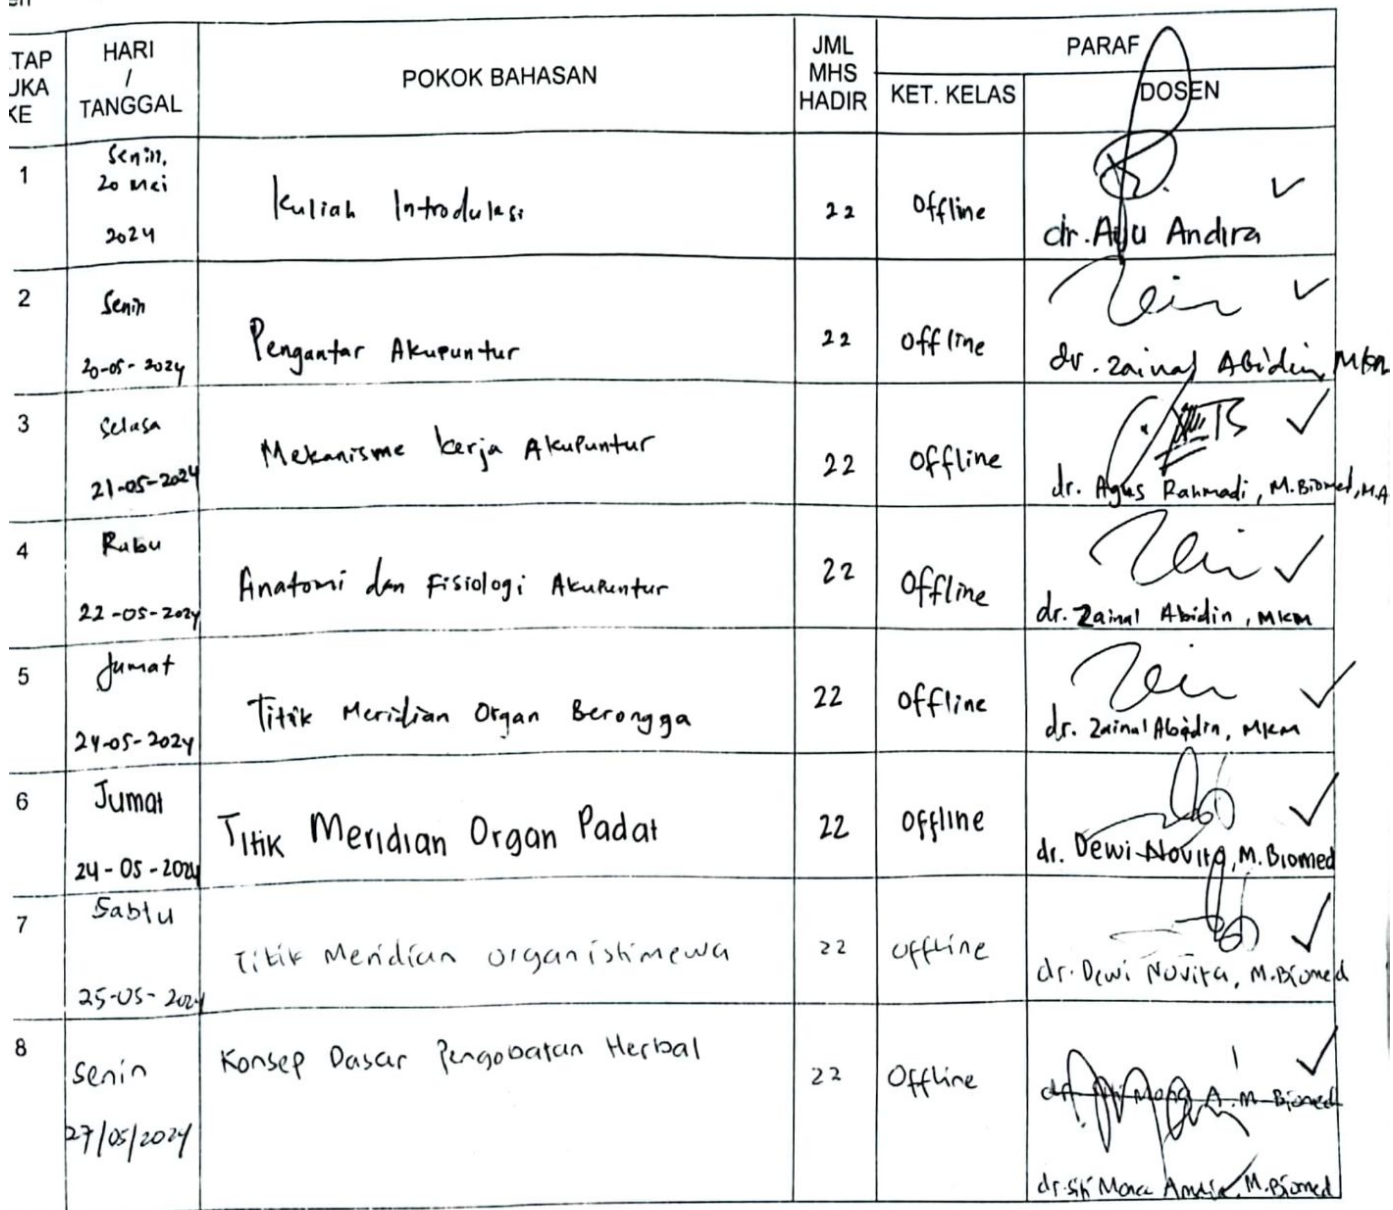 TAP
UKA
KE
HARI
/
TANGGAL
POKOK BAHASAN
JML
MHS
HADIR
PARAF
KET. KELAS
DOSEN
1
Senin,
20 Mei
2024
Kuliah Introduksi
22
Offline
dr. Ayu Andira
2
Senin
20-05-2024
Pengantar Akupuntur
22
Offline
dr. Zainal Abidin, MKM
3
Selasa
21-05-2024
Mekanisme kerja Akupuntur
22
Offline
dr. Agus Rahmadi, M.Biomed, M.A
4
Rabu
22-05-2024
Anatomi dan Fisiologi Akupuntur
22
Offline
dr. Zainal Abidin, MKM
5
Jumat
24-05-2024
Titik Meridian Organ Berongga
22
Offline
dr. Zainal Abidin, MKM
6
Jumat
24-05-2024
Titik Meridian Organ Padat
22
Offline
dr. Dewi Novita, M.Biomed
7
Sabtu
25-05-2024
Titik Meridian organ istimewa
22
Offline
dr. Dewi Novita, M.Biomed
8
Senin
27/05/2024
Konsep Dasar Pengobatan Herbal
22
Offline
A. M. Biomed
dr. Siti Mona M.Biomed